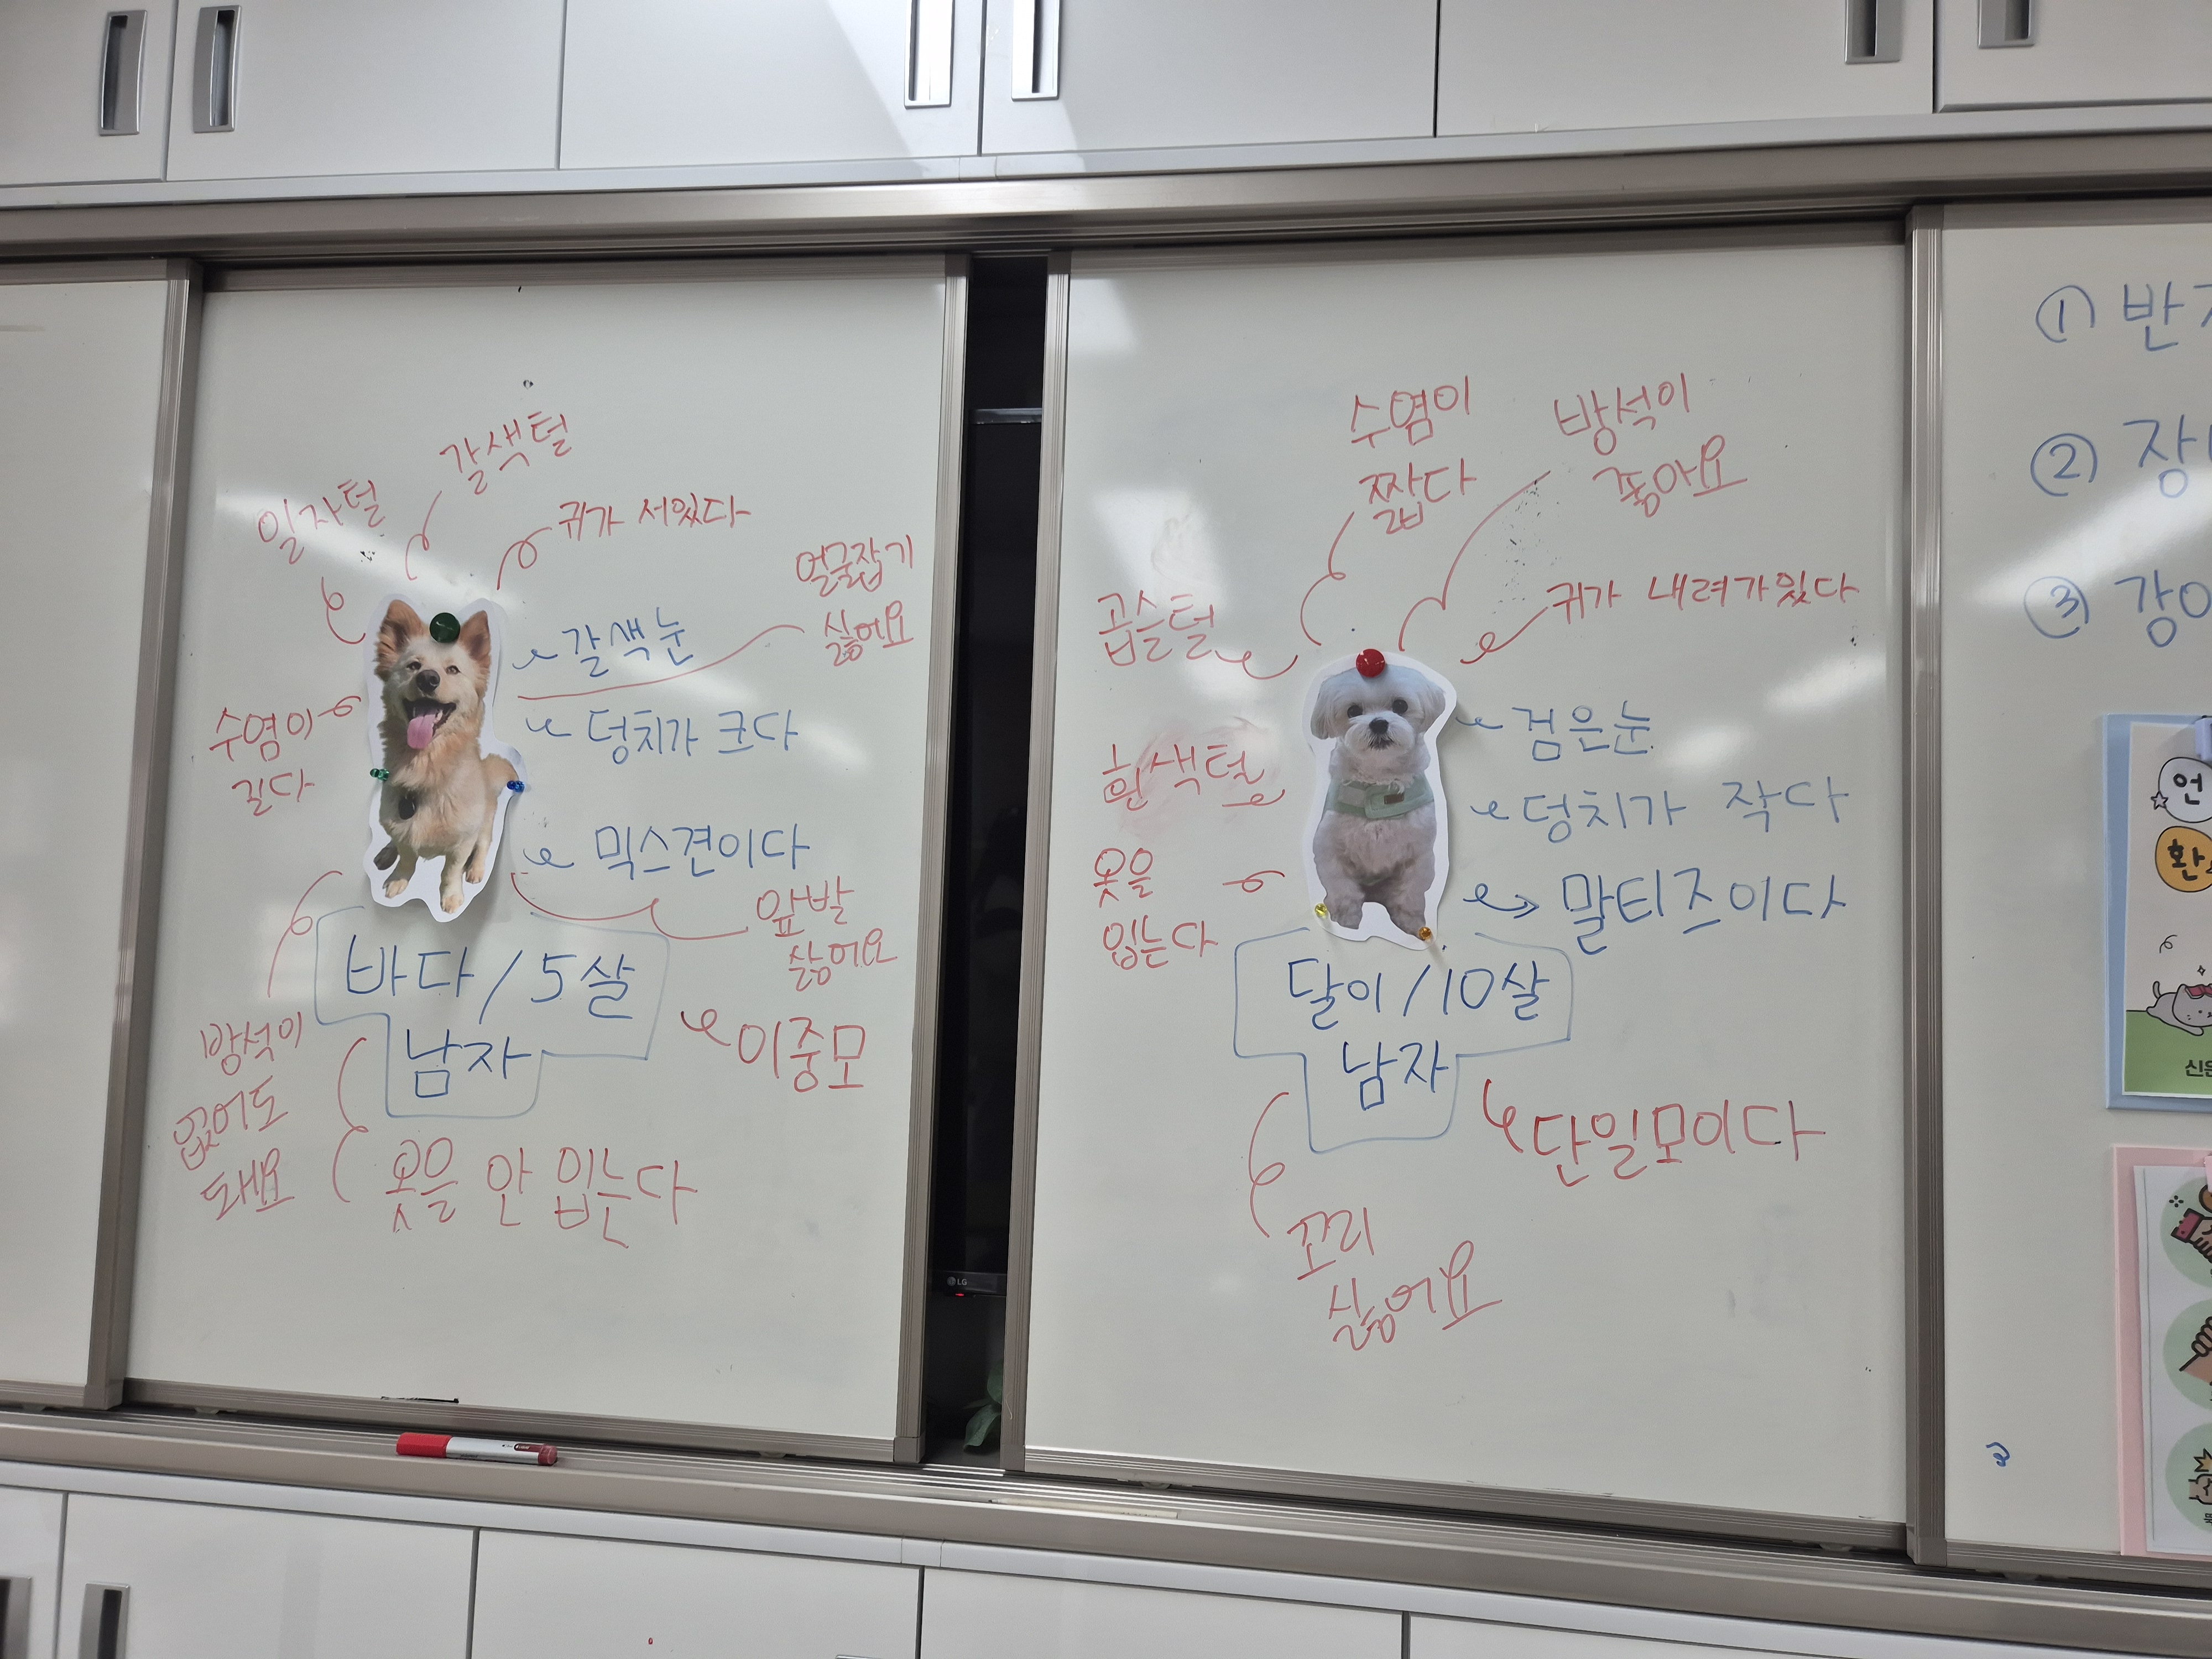 갈색털
일자털
귀가 서있다
얼굴잡기
싫어요
갈색눈
수염이
길다
덩치가 크다
믹스견이다
앞발
싫어요
바다/5살
남자
이중모
방석이
없어도
돼요
옷을 안 입는다
수염이
짧다
방석이
좋아요
곱슬털
귀가 내려가있다
검은눈
흰색털
덩치가 작다
옷을
입는다
말티즈이다
달이/10살
남자
단일모이다
꼬리
싫어요
LG
① 반
② 장
③ 강
언
환